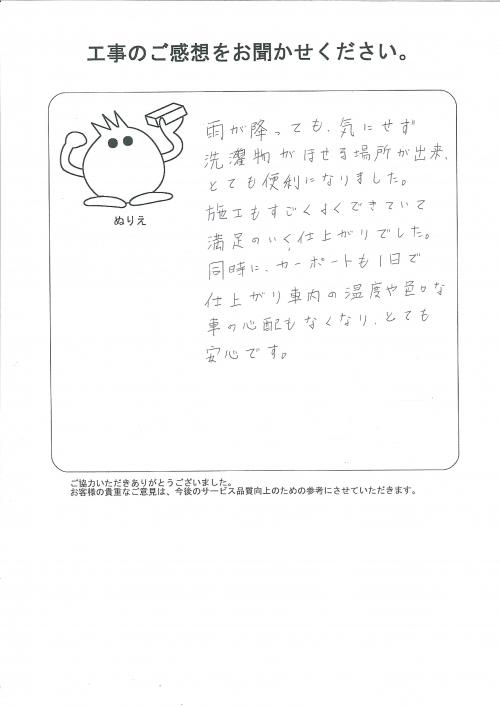 工事のご感想をお聞かせください。
ぬりえ
雨が降っても、気にせず
洗濯物がほせる場所が出来、
とても便利になりました。
施工もすごくよくできていて
満足のいく仕上がりでした。
同時に、カーポートも1日で
仕上がり車内の温度や色々な
車の心配もなくなり、とても
安心です。
ご協力いただきありがとうございました。
お客様の貴重なご意見は、今後のサービス品質向上のための参考にさせていただきます。